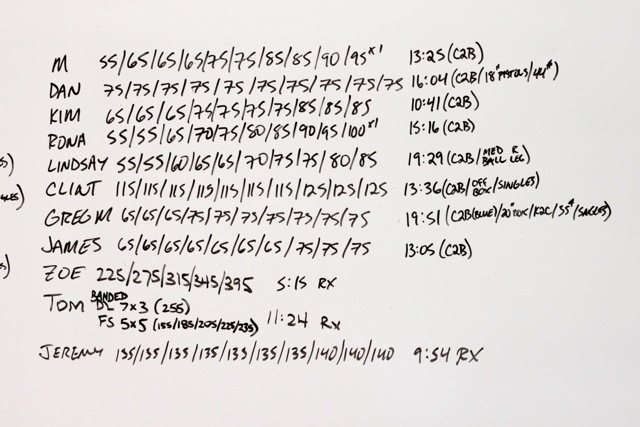 M 55/65/65/65/75/75/85/85/90/95x1 13:25 (C2B)
DAN 75/75/75/75/75/75/75/75/75/75 16:04 (C2B/18" PISTOLS/44#)
KIM 65/65/65/75/75/75/75/85/85/85 10:41 (C2B)
RONA 55/55/65/70/75/80/85/90/95/100x1 15:16 (C2B)
LINDSAY 55/55/60/65/65/70/75/75/80/85 19:29 (C2B/MED BALL R LEG)
CLINT 115/115/115/115/115/115/115/125/125/125 13:36 (C2B/OFF BOX/SINGLES)
GREG M 65/65/65/75/75/75/75/75/75/75 19:51 (C2B(BLUE)/20" BOX/K2C/35#/SINGLES)
JAMES 65/65/65/65/65/65/65/75/75/75 13:05 (C2B)
ZOE 225/275/315/345/395 5:15 RX
TOM BANDED DL 7x3 (255)
FS 5x5 (155/185/205/225/235) 11:24 Rx
JEREMY 135/135/135/135/135/135/135/140/140/140 9:54 RX